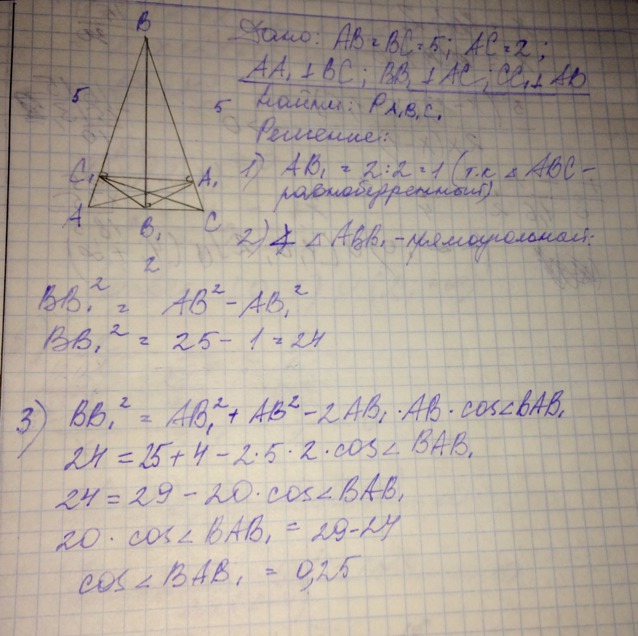 B
Дано: AB = BC = 5; AC = 2;
AA₁ ⊥ BC; BB₁ ⊥ AC; CC₁ ⊥ AB
5
5
Найти: P A₁B₁C₁
Решение:
C₁
A₁
1) AB₁ = 2:2 = 1 (т.к. △ ABC -
равнобедренный)
A
B₁
C
2
2) △ ABB₁ - прямоугольный:
BB₁² = AB² - AB₁²
BB₁² = 25 - 1 = 24
3) BB₁² = AB₁² + AB² - 2AB₁ · AB · cos∠BAB₁
24 = 25 + 4 - 2·5·2·cos∠BAB₁
24 = 29 - 20·cos∠BAB₁
20 · cos∠BAB₁ = 29-24
cos∠BAB₁ = 0,25